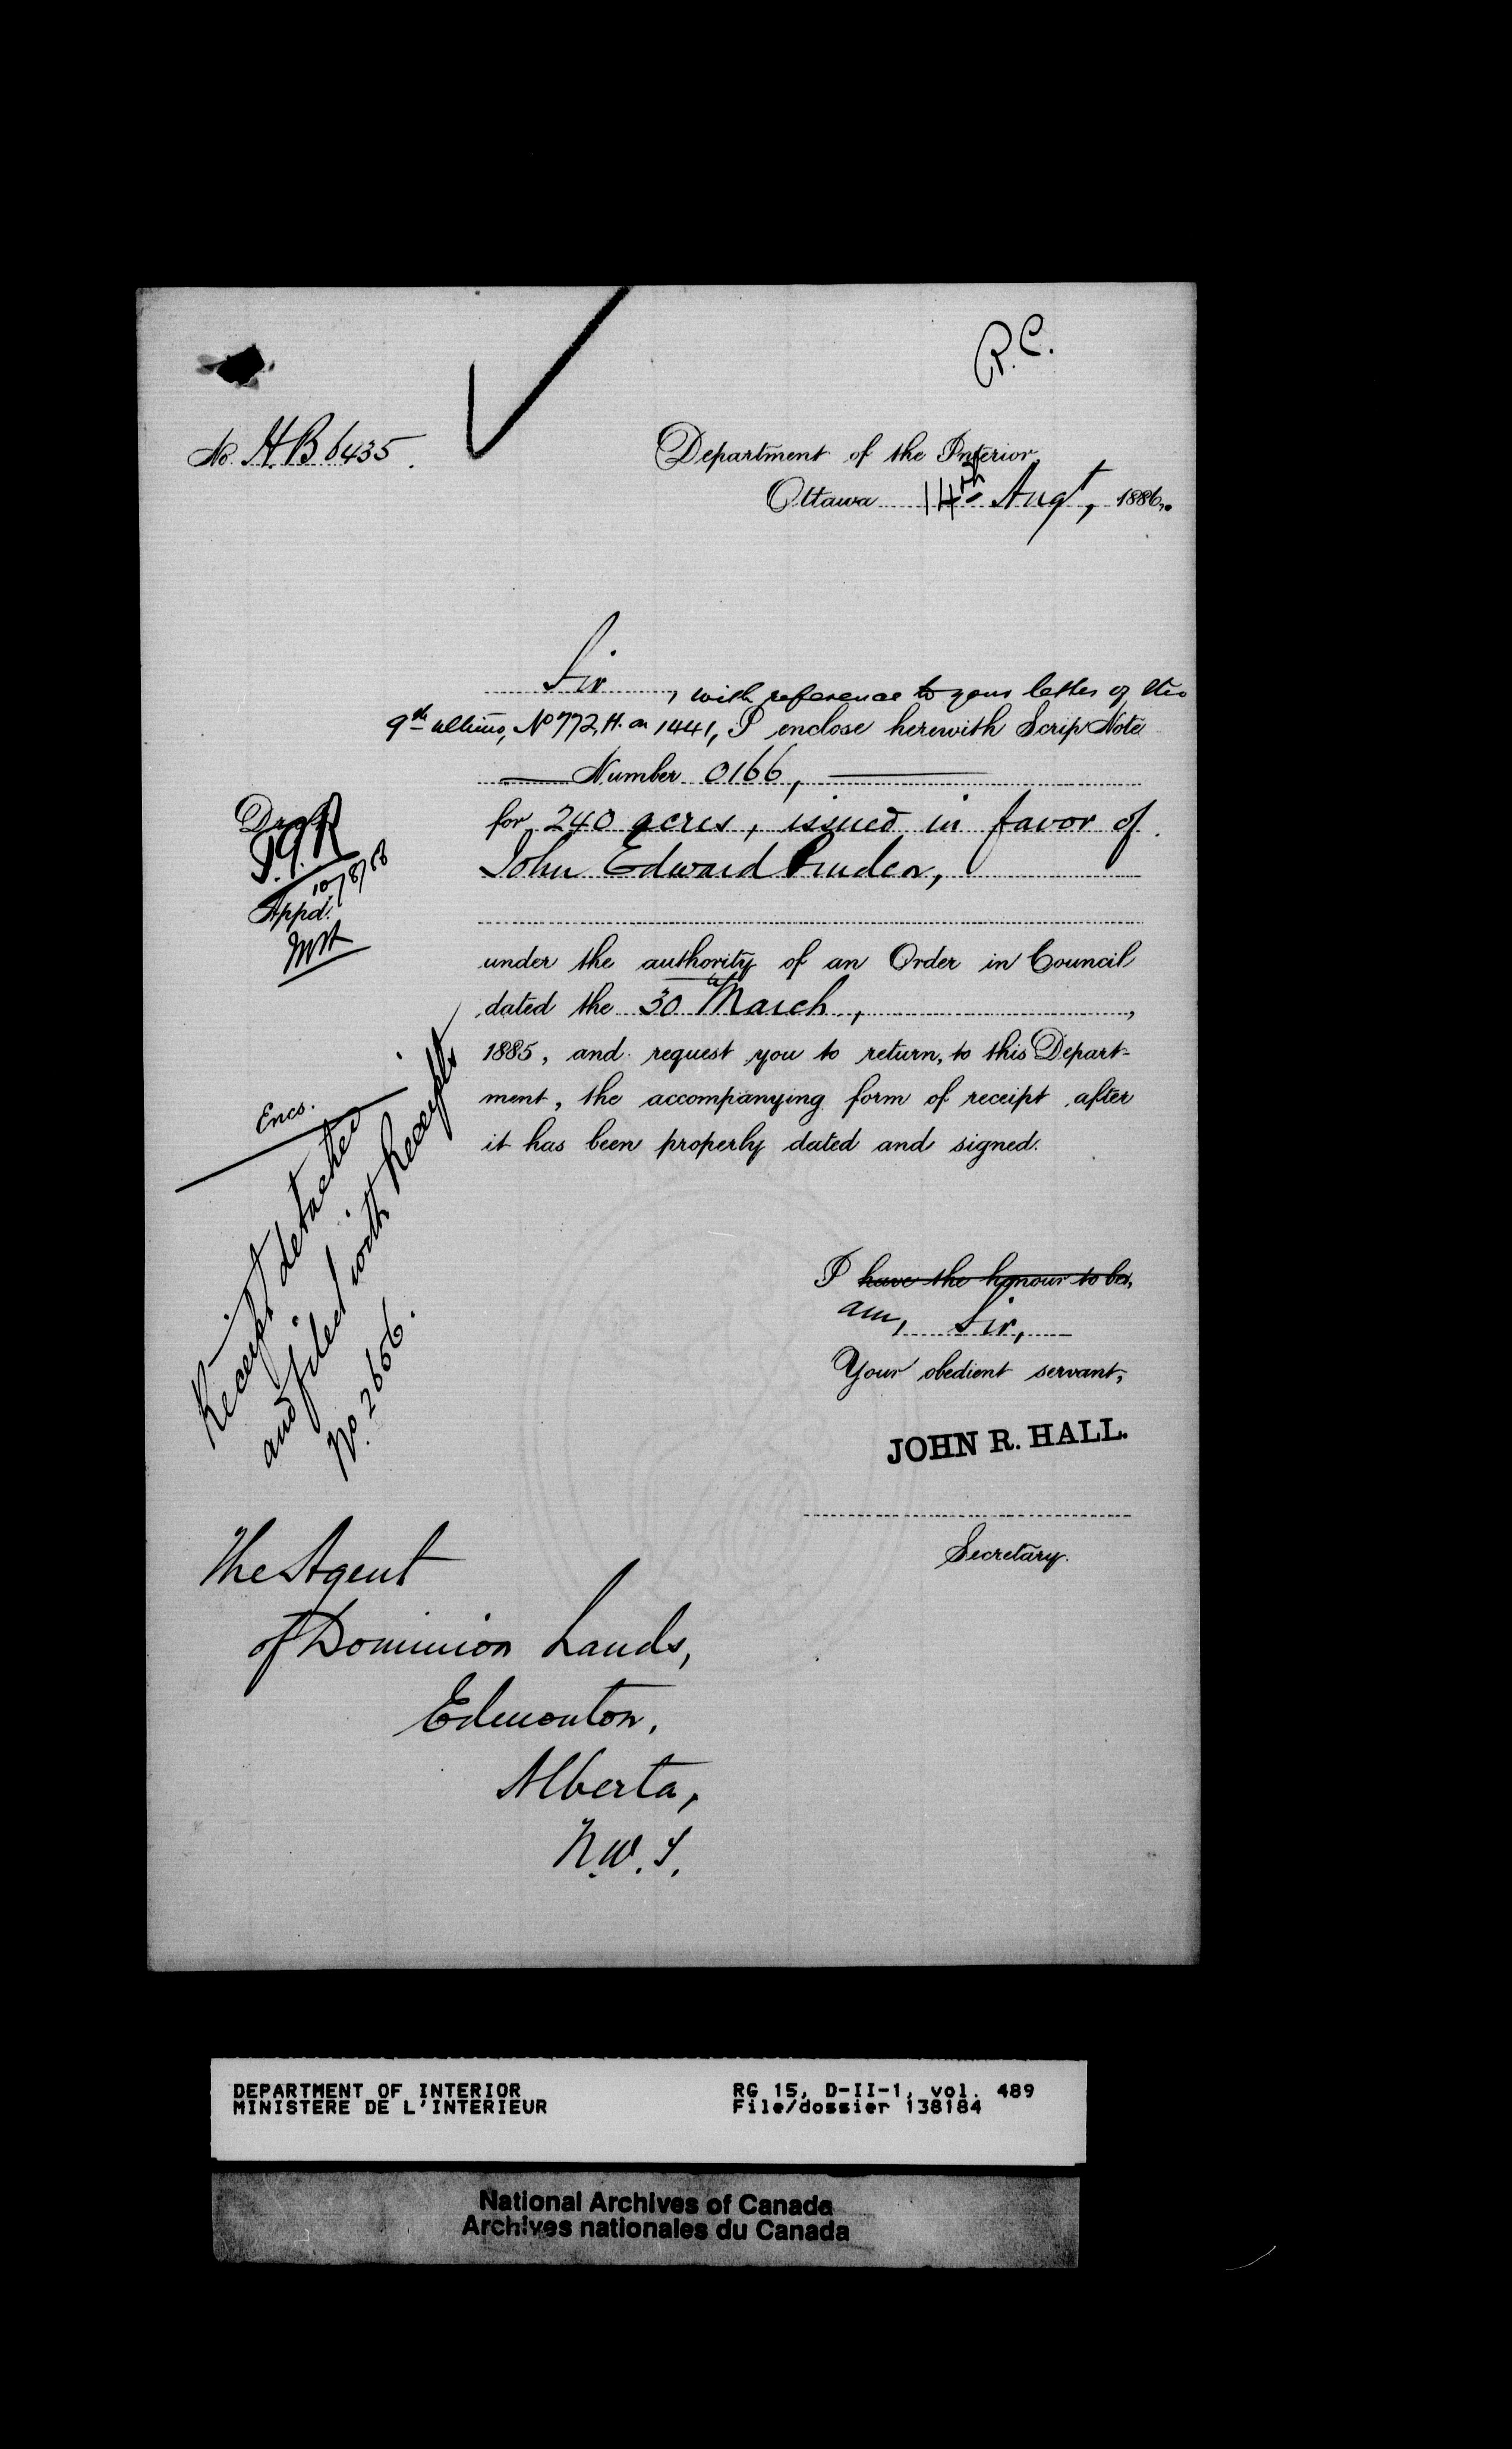 R.C.
No. HB 6435.
Department of the Interior,
Ottawa 14th Augt, 1886.
Sir, with reference to your letter of the
9th ultimo, No 772, H. on 1441, I enclose herewith Scrip Note
Number 0166,
for 240 acres, issued in favor of
John Edward Pruden,
under the authority of an Order in Council
dated the 30th March,
1885, and request you to return, to this Depart-
ment, the accompanying form of receipt after
it has been properly dated and signed.
Appd.
Encs.
Receipt detached
and filed with Receipts
No. 2656.
I have the honour to be,
am, Sir,
Your obedient servant,
JOHN R. HALL.
Secretary.
The Agent
of Dominion Lands,
Edmonton,
Alberta,
N.W.T.
DEPARTMENT OF INTERIOR
MINISTERE DE L'INTERIEUR
RG 15, D-II-1, vol. 489
File/dossier 138184
National Archives of Canada
Archives nationales du Canada